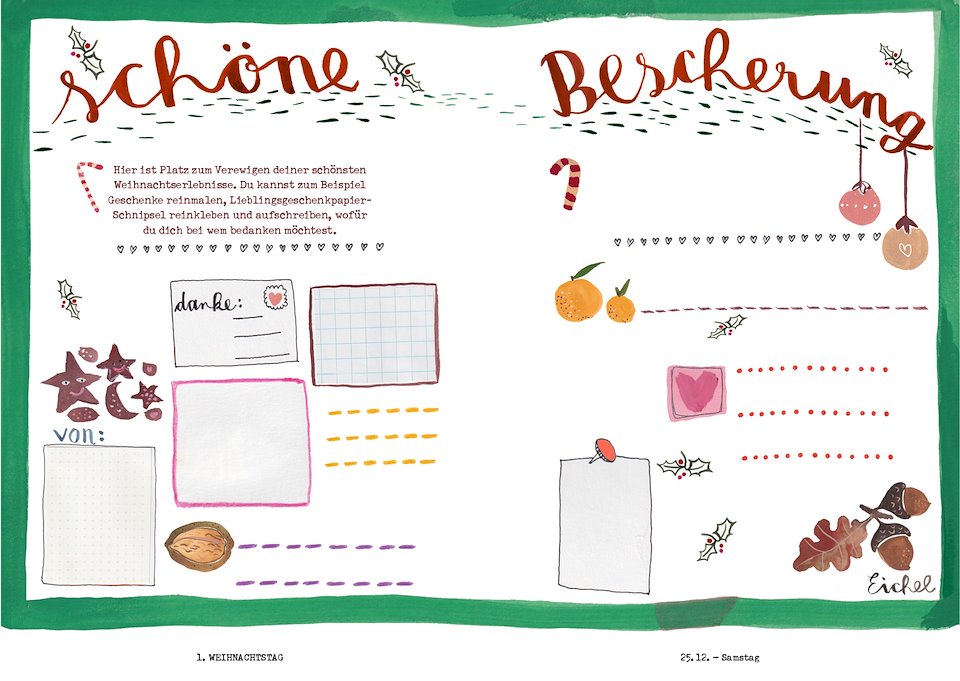 schöne
Bescherung
Hier ist Platz zum Verewigen deiner schönsten
Weihnachtserlebnisse. Du kannst zum Beispiel
Geschenke reinmalen, Lieblingsgeschenkpapier-
Schnipsel reinkleben und aufschreiben, wofür
du dich bei wem bedanken möchtest.
danke:
von:
Eichel
1. WEIHNACHTSTAG
25.12. – Samstag